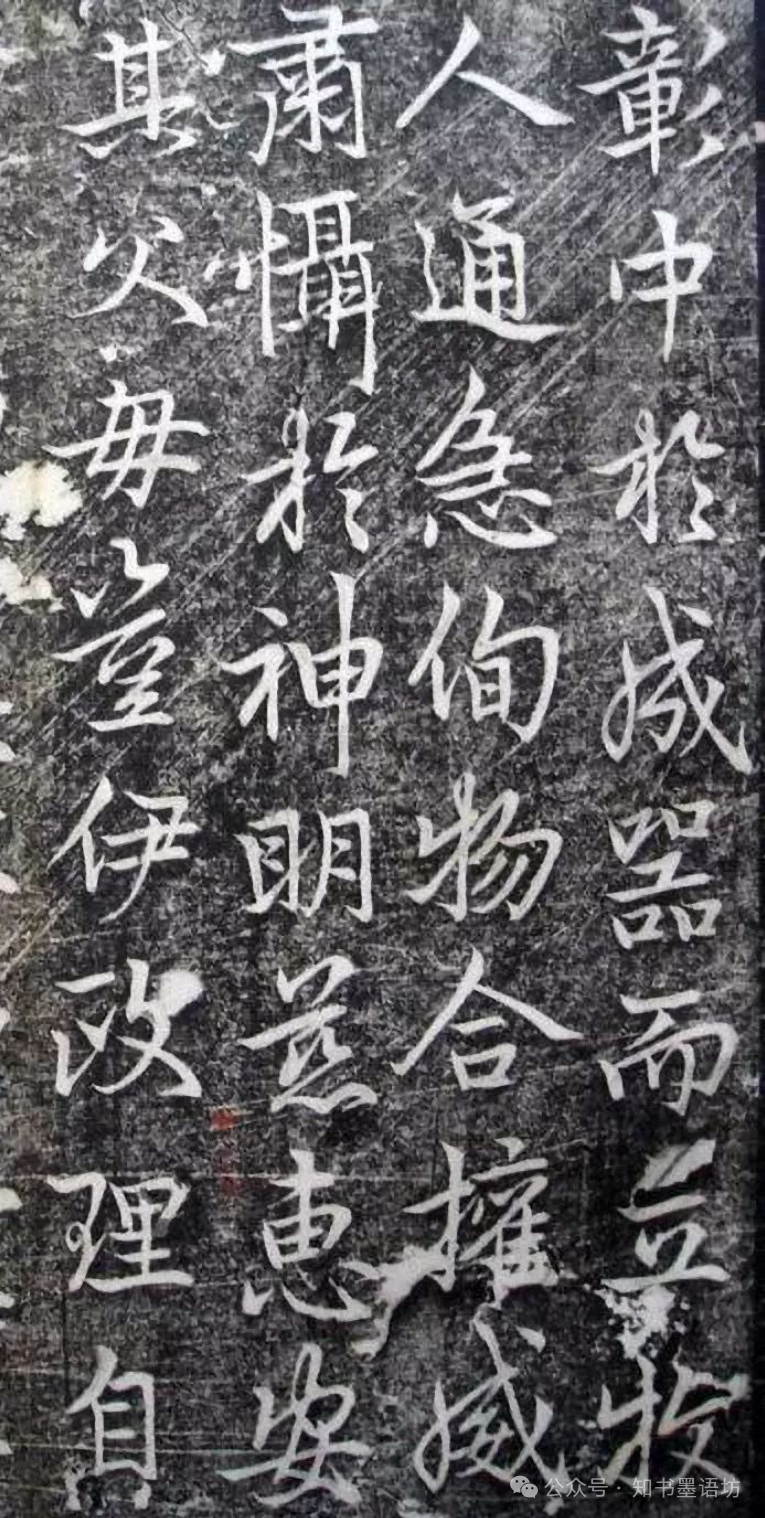 彰中於成器而立牧
人通急侚物合擁威
肅懾於神明慈惠安
其父毋豈伊政理自
公众号·知书墨语坊